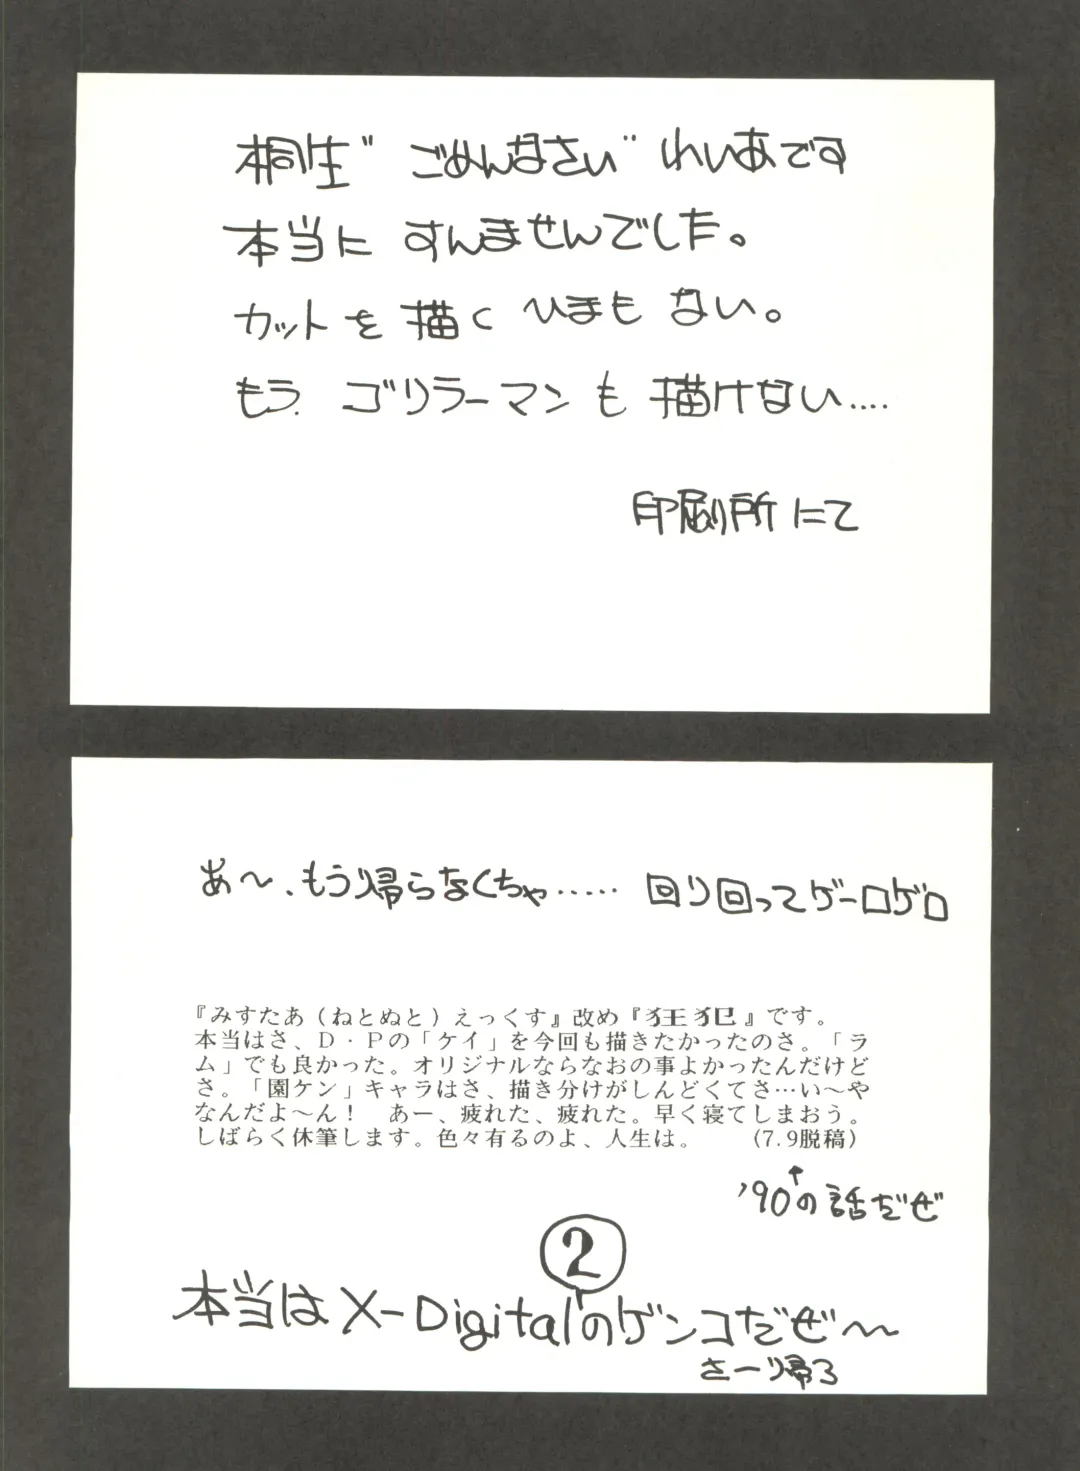 桐生"ごめんなさい"れいあです
本当に すんませんでした。
カットを描くひまもない。
もう.ゴリラーマンも描けない....
印刷所にて
あ〜、もう帰らなくちゃ..... 回り回ってゲーロゲロ
『みすたあ(ねとぬと)えっくす』改め『狂犯』です。
本当はさ、D・Pの「ケイ」を今回も描きたかったのさ。「ラ
ム」でも良かった。オリジナルならなおの事よかったんだけど
さ。「園ケン」キャラはさ、描き分けがしんどくてさ…い〜や
なんだよ〜ん! あー、疲れた、疲れた。早く寝てしまおう。
しばらく休筆します。色々有るのよ、人生は。 (7.9脱稿)
↑
'90の話だぜ
2
本当はX-Digitalのゲンコだぜ〜
さーり帰ろ